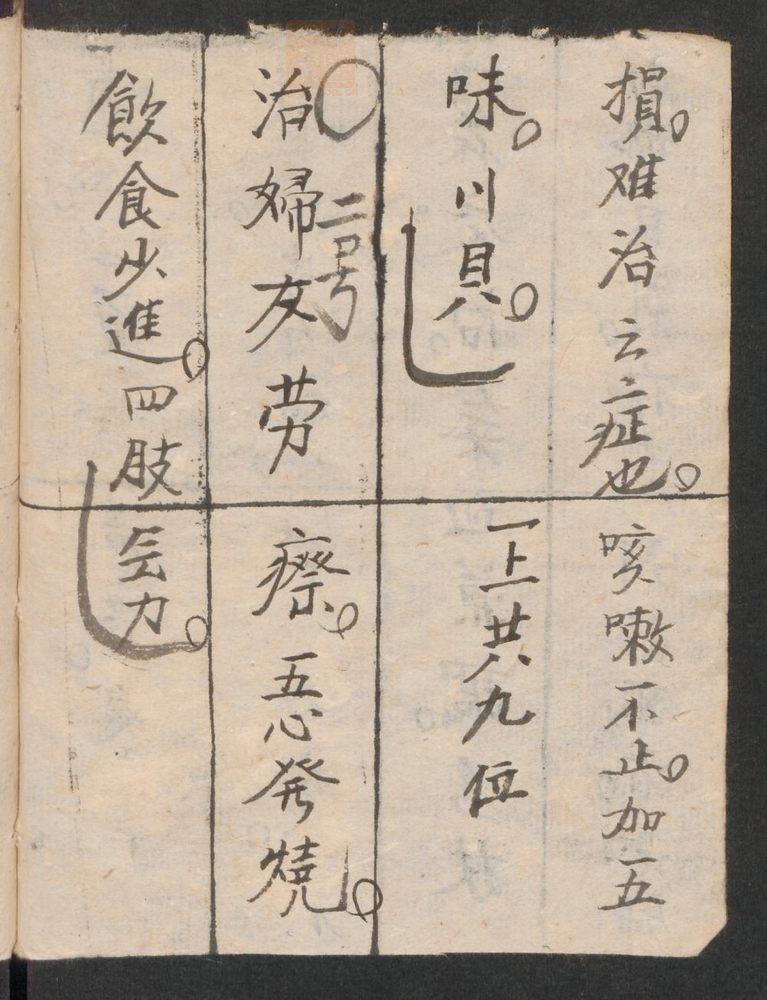 損。难治云症也。咳嗽不止。加五
味。川貝。一上共九位
〇二号
治婦女劳瘵。五心発燒。
飲食少進。四肢力。